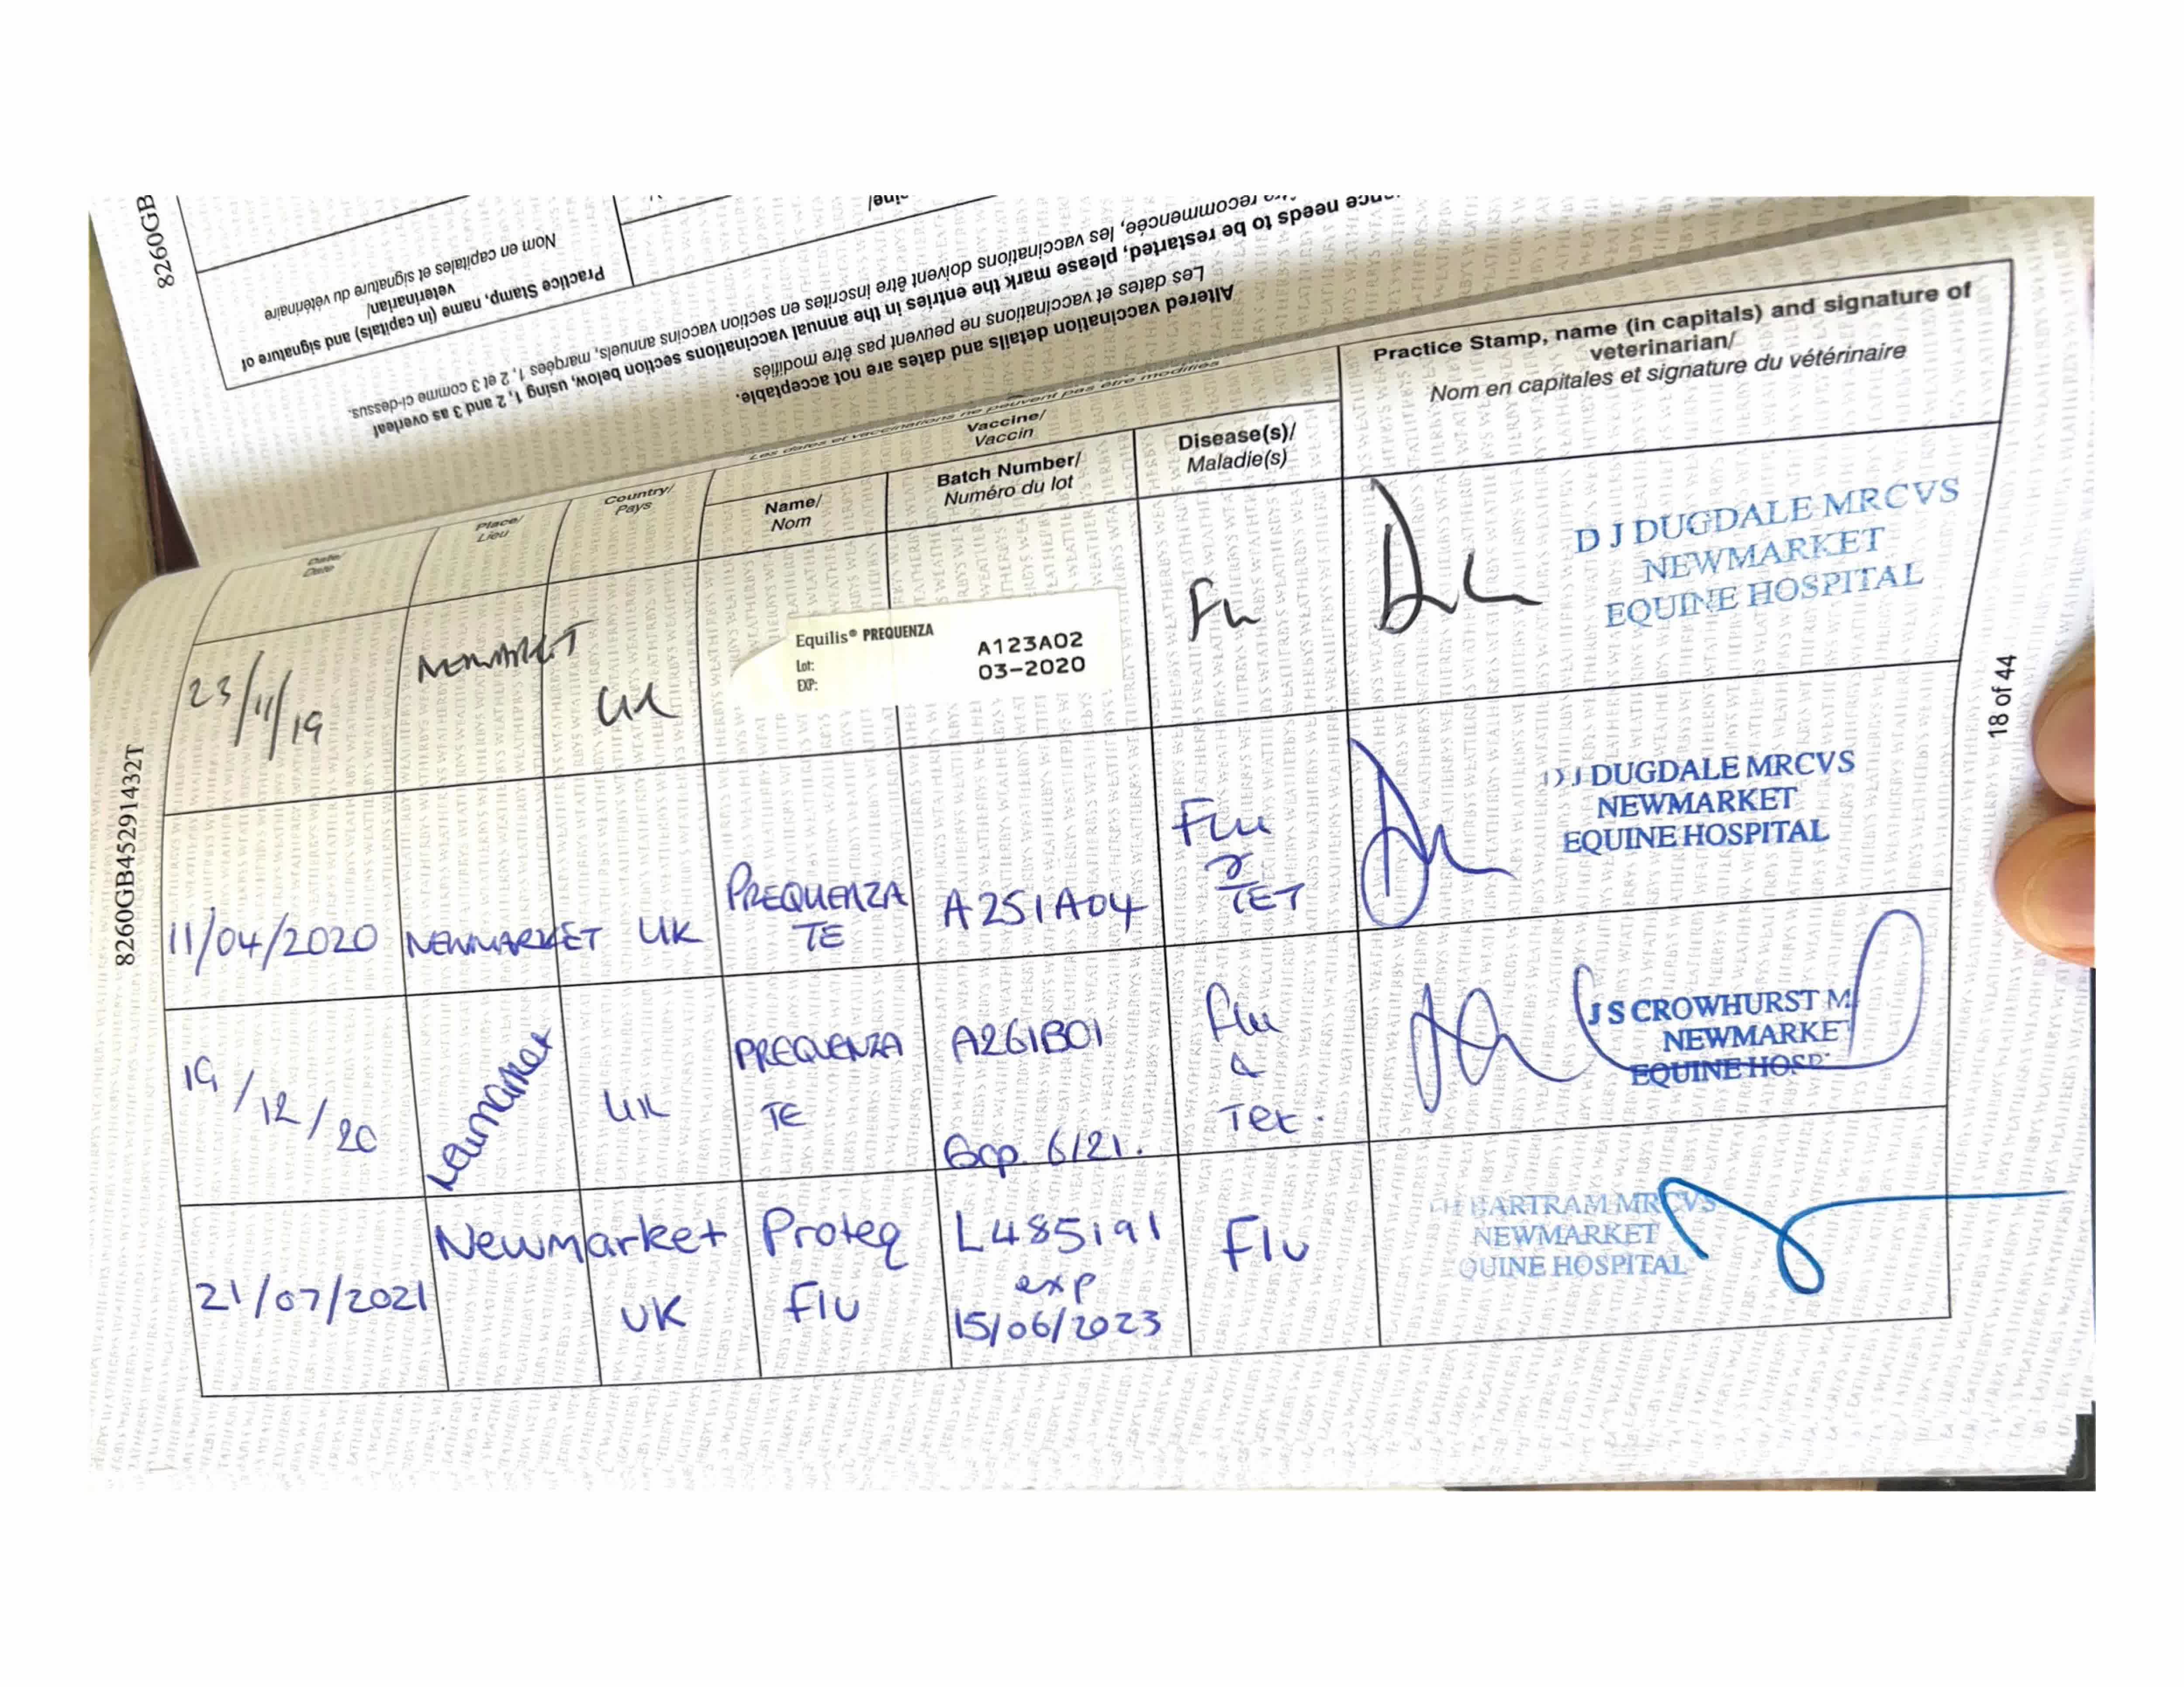 8260GB
Practice Stamp, name (in capitals) and signature of
veterinarian/
Nom en capitales et signature du vétérinaire
Altered vaccination details and dates are not acceptable.
Les dates et vaccinations ne peuvent pas être modifiés
needs to be restarted, please mark the entries in the annual vaccinations section below, using 1, 2 and 3 as overleaf
recommencée, les vaccinations doivent être inscrites en section vaccins annuels, marquées 1, 2 et 3 comme ci-dessus.
Les dates et vaccinations ne peuvent pas être modifiés
Date/
Date
Place/
Lieu
Country/
Pays
Vaccine/
Vaccin
Name/
Nom
Batch Number/
Numéro du lot
Disease(s)/
Maladie(s)
Practice Stamp, name (in capitals) and signature of
veterinarian/
Nom en capitales et signature du vétérinaire
23/11/19
NEWMARKET
UK
Equilis® PREQUENZA
Lot: A123A02
EXP: 03-2020
Flu
D J DUGDALE MRCVS
NEWMARKET
EQUINE HOSPITAL
11/04/2020
NEWMARKET
UK
PREQUENZA
TE
A251A04
Flu
&
TET
D J DUGDALE MRCVS
NEWMARKET
EQUINE HOSPITAL
19/12/20
Newmarket
UK
PREQUENZA
TE
A261B01
Exp. 6/21.
Flu
&
Tet.
J S CROWHURST M
NEWMARKE
EQUINE HOSP
21/07/2021
Newmarket
UK
Proteq
Flu
L485191
exp
15/06/2023
Flu
BARTRAM MRCVS
NEWMARKET
QUINE HOSPITAL
8260GB45291432T
18 of 44